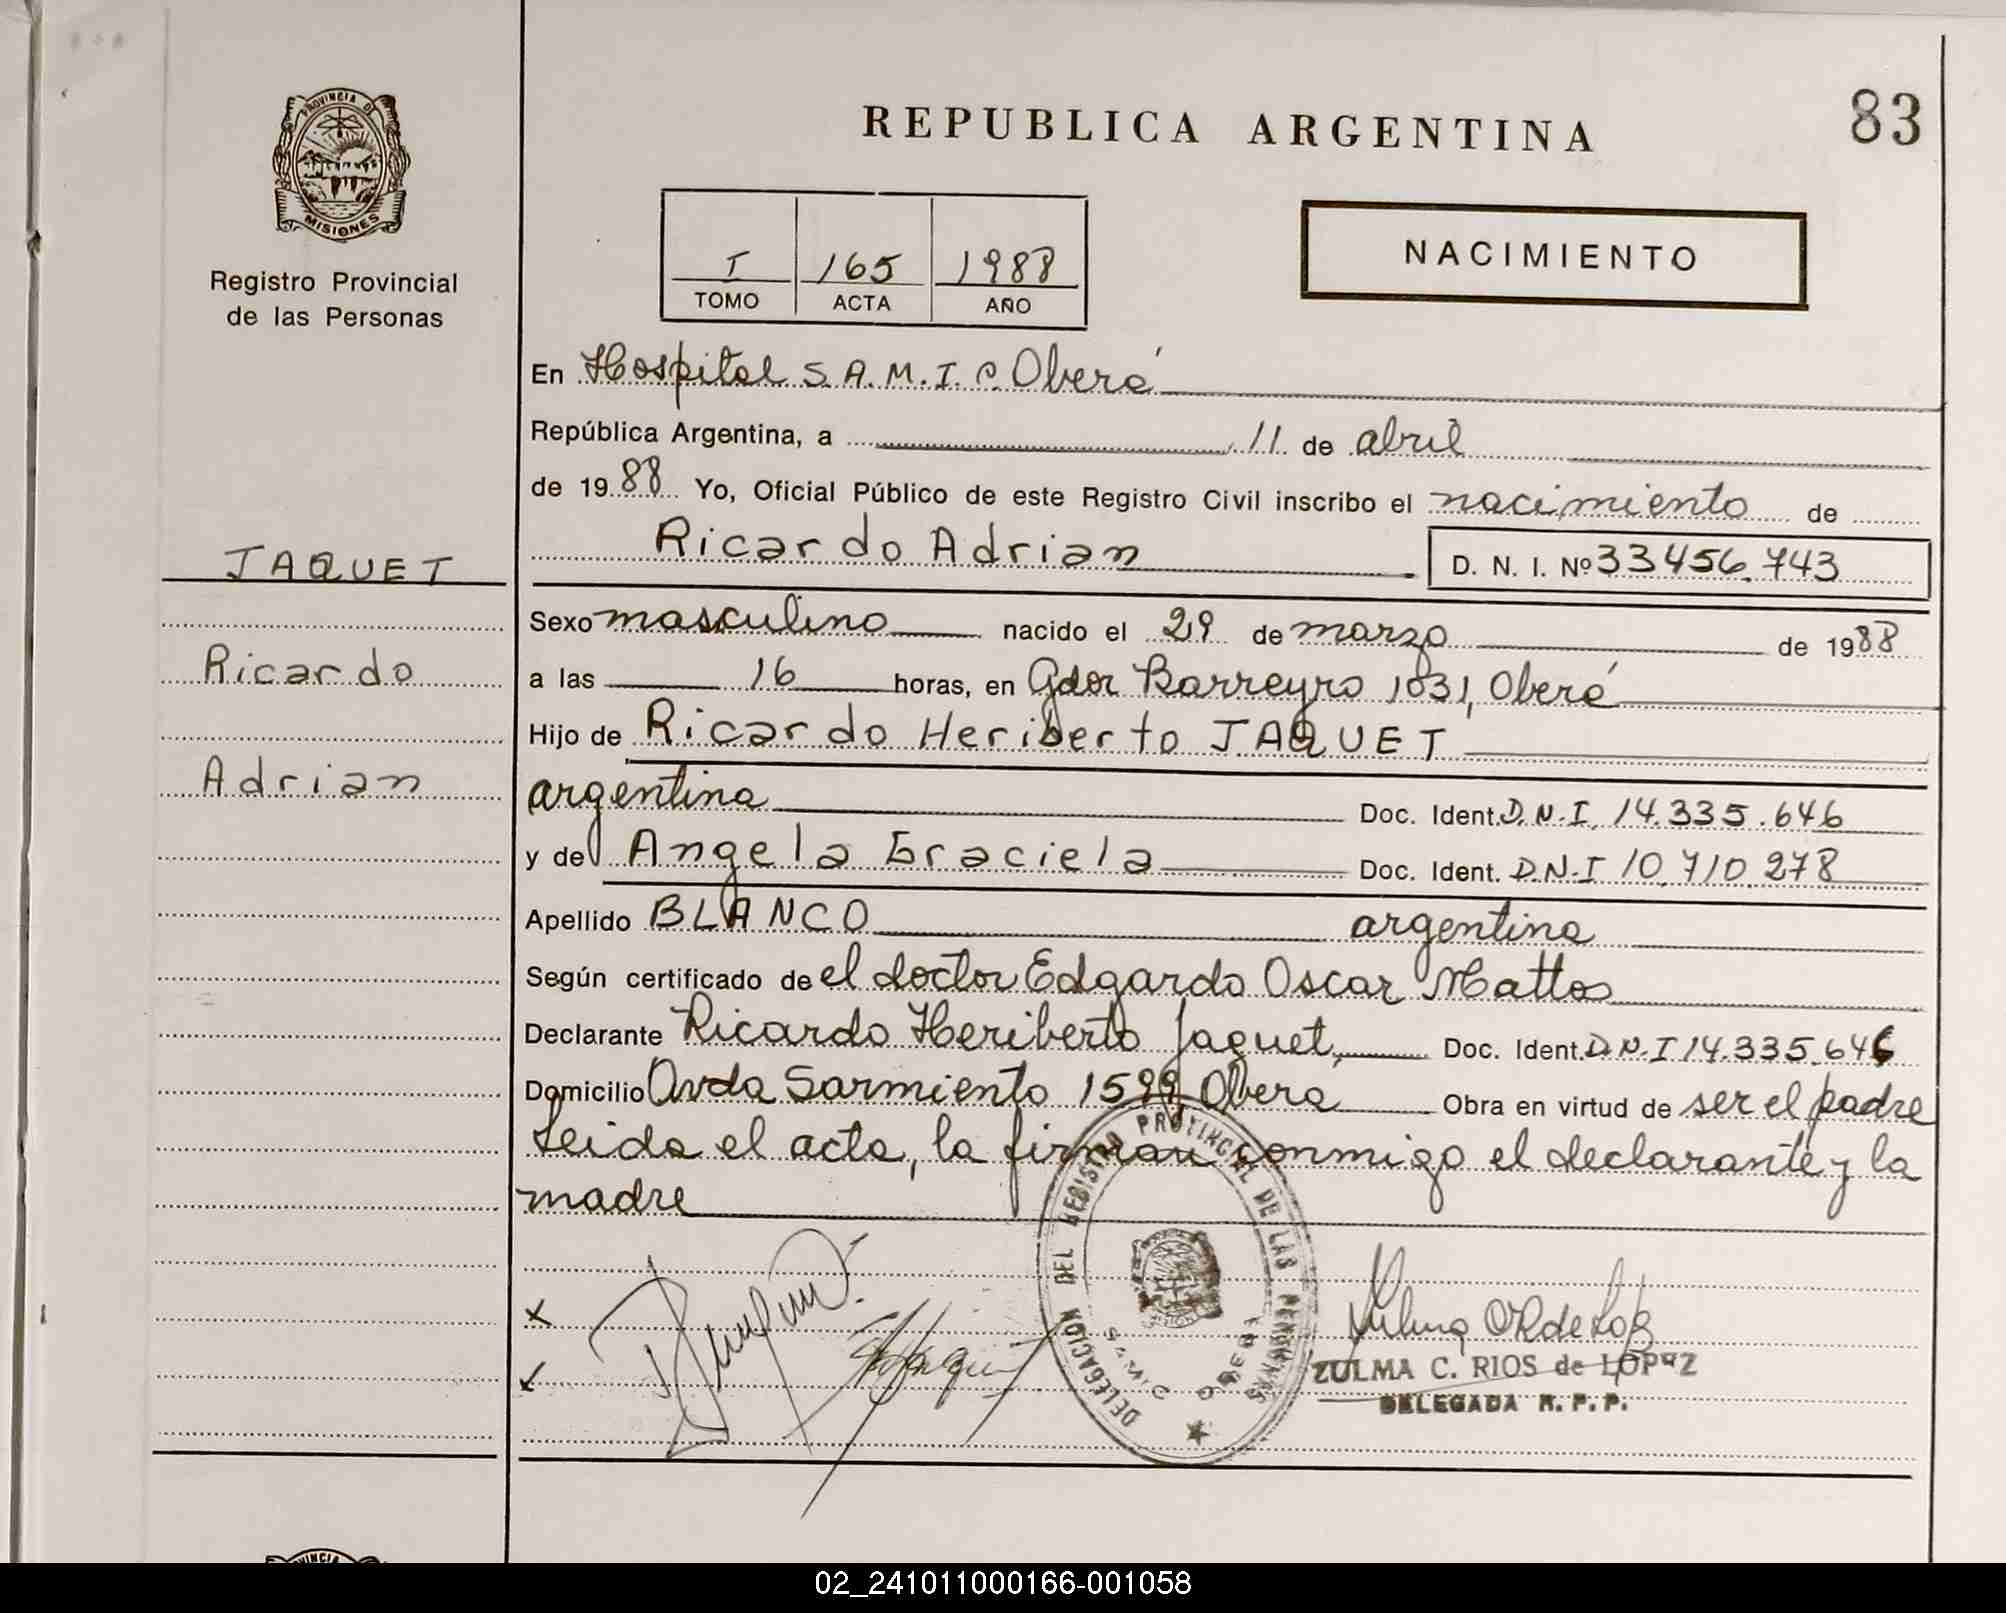 83
REPUBLICA ARGENTINA
PROVINCIA DE
MISIONES
Registro Provincial
de las Personas
NACIMIENTO
I 165 1988
TOMO ACTA AÑO
En Hospital S.A.M.I.C. Oberá
República Argentina, a 11 de abril
de 1988 Yo, Oficial Público de este Registro Civil inscribo el nacimiento de
Ricardo Adrian D. N. I. Nº 33456.743
JAQUET
Ricardo
Adrian
Sexo masculino nacido el 29 de marzo de 1988
a las 16 horas, en Gdor Barreyro 1031, Oberá
Hijo de Ricardo Heriberto JAQUET
argentina Doc. Ident. D.N.I. 14.335.646
y de Angela Graciela Doc. Ident. D.N.I 10.710.278
Apellido BLANCO argentina
Según certificado de el doctor Edgardo Oscar Mattos
Declarante Ricardo Heriberto Jaquet, Doc. Ident. D.N.I 14.335.646
Domicilio Avda Sarmiento 1599 Obera Obra en virtud de ser el padre
Leida el acta, la firman conmigo el declarante y la
madre
DELEGACION DEL REGISTRO PROVINCIAL DE LAS PERSONAS
OBERA
ZULMA C. RIOS de LOPEZ
DELEGADA R. P. P.
02_241011000166-001058